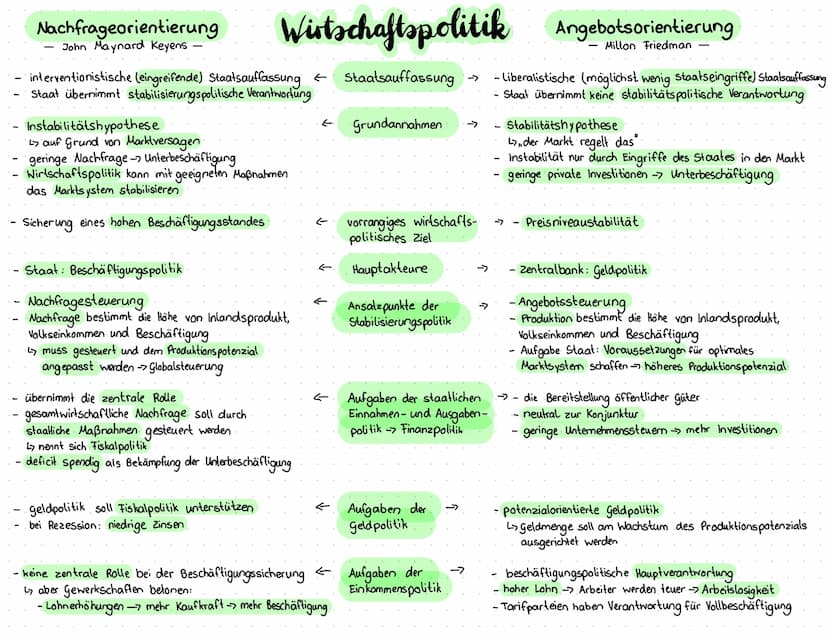 Wirtschaftspolitik
Nachfrageorientierung
— John Maynard Keyens —
Angebotsorientierung
— Millon Friedman —
Staatsauffassung
- interventionistische (eingreifende) Staatsauffassung ←
- Staat übernimmt stabilisierungspolitische Verantwortung
→ - Liberalistische (möglichst wenig Staatseingriffe) Staatsauffassung
- Staat übernimmt keine stabilitätspolitische Verantwortung
Grundannahmen
- Instabilitätshypothese ←
↳ auf Grund von Marktversagen
- geringe Nachfrage → Unterbeschäftigung
- Wirtschaftspolitik kann mit geeigneten Maßnahmen
das Marktsystem stabilisieren
→ - Stabilitätshypothese
↳ „der Markt regelt das"
- Instabilität nur durch Eingriffe des Staates in den Markt
- geringe private Investitionen → Unterbeschäftigung
vorrangiges wirtschafts-
politisches Ziel
- Sicherung eines hohen Beschäftigungsstandes ←
→ - Preisniveaustabilität
Hauptakteure
- Staat: Beschäftigungspolitik ←
→ - Zentralbank: Geldpolitik
Ansatzpunkte der
Stabilisierungspolitik
- Nachfragesteuerung ←
- Nachfrage bestimmt die Höhe von Inlandsprodukt,
Volkseinkommen und Beschäftigung
↳ muss gesteuert und dem Produktionspotenzial
angepasst werden → Globalsteuerung
→ - Angebotssteuerung
- Produktion bestimmt die Höhe von Inlandsprodukt,
Volkseinkommen und Beschäftigung
- Aufgabe Staat: Voraussetzungen für optimales
Marktsystem schaffen → höheres Produktionspotenzial
Aufgaben der staatlichen
Einnahmen- und Ausgaben-
politik → Finanzpolitik
- übernimmt die zentrale Rolle ←
- gesamtwirtschaftliche Nachfrage soll durch
staatliche Maßnahmen gesteuert werden
↳ nennt sich Fiskalpolitik
- deficit spendig als Bekämpfung der Unterbeschäftigung
→ - die Bereitstellung öffentlicher Güter
- neutral zur Konjunktur
- geringe Unternehmenssteuern → mehr Investitionen
Aufgaben der
Geldpolitik
- geldpolitik soll Fiskalpolitik unterstützen ←
- bei Rezession: niedrige Zinsen
→ - potenzialorientierte Geldpolitik
↳ Geldmenge soll am Wachstum des Produktionspotenzials
ausgerichtet werden
Aufgaben der
Einkommenspolitik
- keine zentrale Rolle bei der Beschäftigungssicherung ←
↳ aber Gewerkschaften betonen:
- Lohnerhöhungen → mehr Kaufkraft → mehr Beschäftigung
→ - beschäftigungspolitische Hauptverantwortung
- hoher Lohn → Arbeiter werden teuer → Arbeitslosigkeit
- Tarifparteien haben Verantwortung für Vollbeschäftigung